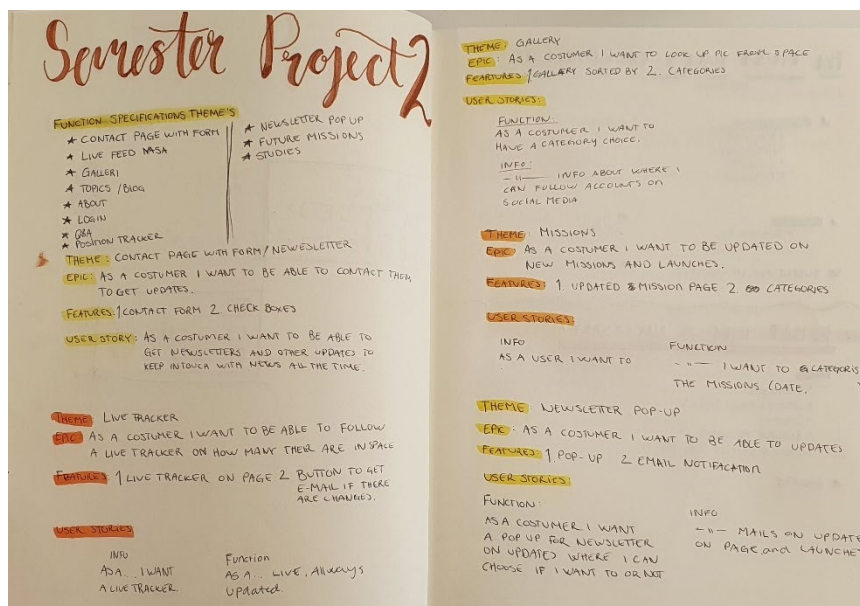 Semester Project 2
FUNCTION SPECIFICATIONS THEME'S
★ CONTACT PAGE WITH FORM
★ LIVE FEED NASA
★ GALLERI
★ TOPICS / BLOG
★ ABOUT
★ LOGIN
★ Q&A
★ POSITION TRACKER
★ NEWSLETTER POP UP
★ FUTURE MISSIONS
★ STUDIES
THEME: CONTACT PAGE WITH FORM / NEWESLETTER
EPIC: AS A COSTUMER I WANT TO BE ABLE TO CONTACT THEM
TO GET UPDATES.
FEATURES: 1 CONTACT FORM 2. CHECK BOXES
USER STORY: AS A COSTUMER I WANT TO BE ABLE TO
GET NEWSLETTERS AND OTHER UPDATES TO
KEEP IN TOUCH WITH NEWS ALL THE TIME.
THEME: LIVE TRACKER
EPIC: AS A COSTUMER I WANT TO BE ABLE TO FOLLOW
A LIVE TRACKER ON HOW MANY THEIR ARE IN SPACE
FEATURES: 1 LIVE TRACKER ON PAGE 2 BUTTON TO GET
E-MAIL IF THERE
ARE CHANGES.
USER STORIES
INFO
AS A... I WANT
A LIVE TRACKER
Function
AS A... LIVE, Allways
updated.
THEME: GALLERY
EPIC: AS A COSTUMER I WANT TO LOOK UP PIC FROM SPACE
FEARTURES: 1 GALLARY SORTED BY 2. CATEGORIES
USER STORIES:
FUNCTION:
AS A COSTUMER I WANT TO
HAVE A CATEGORY CHOICE.
INFO:
-"- INFO ABOUT WHERE I
CAN FULLOW ACCOUNTS ON
SOCIAL MEDIA
THEME: MISSIONS
EPIC AS A COSTUMER I WANT TO BE UPDATED ON
NEW MISSIONS AND LAUNCHES.
FEATURES: 1. UPDATED MISSION PAGE 2. CATEGORIES
USER STORIES:
INFO
AS A USER I WANT TO
FUNCTION
-"- I WANT TO CATEGORIS
THE MISSIONS (DATE,
THEME NEWSLETTER POP-UP
EPIC: AS A COSTUMER I WANT TO BE ABLE TO UPDATES
FEATURES: 1. POP-UP 2 EMAIL NOTIFACATION
USER STORIES:
FUNCTION:
AS A COSTUMER I WANT
A POP UP FOR NEWSLETTER
ON UPDATES WHERE I CAN
CHOOSE IF I WANT TO OR NOT
INFO
-"- MAILS ON UPDATE
ON PAGE and LAUNCHE